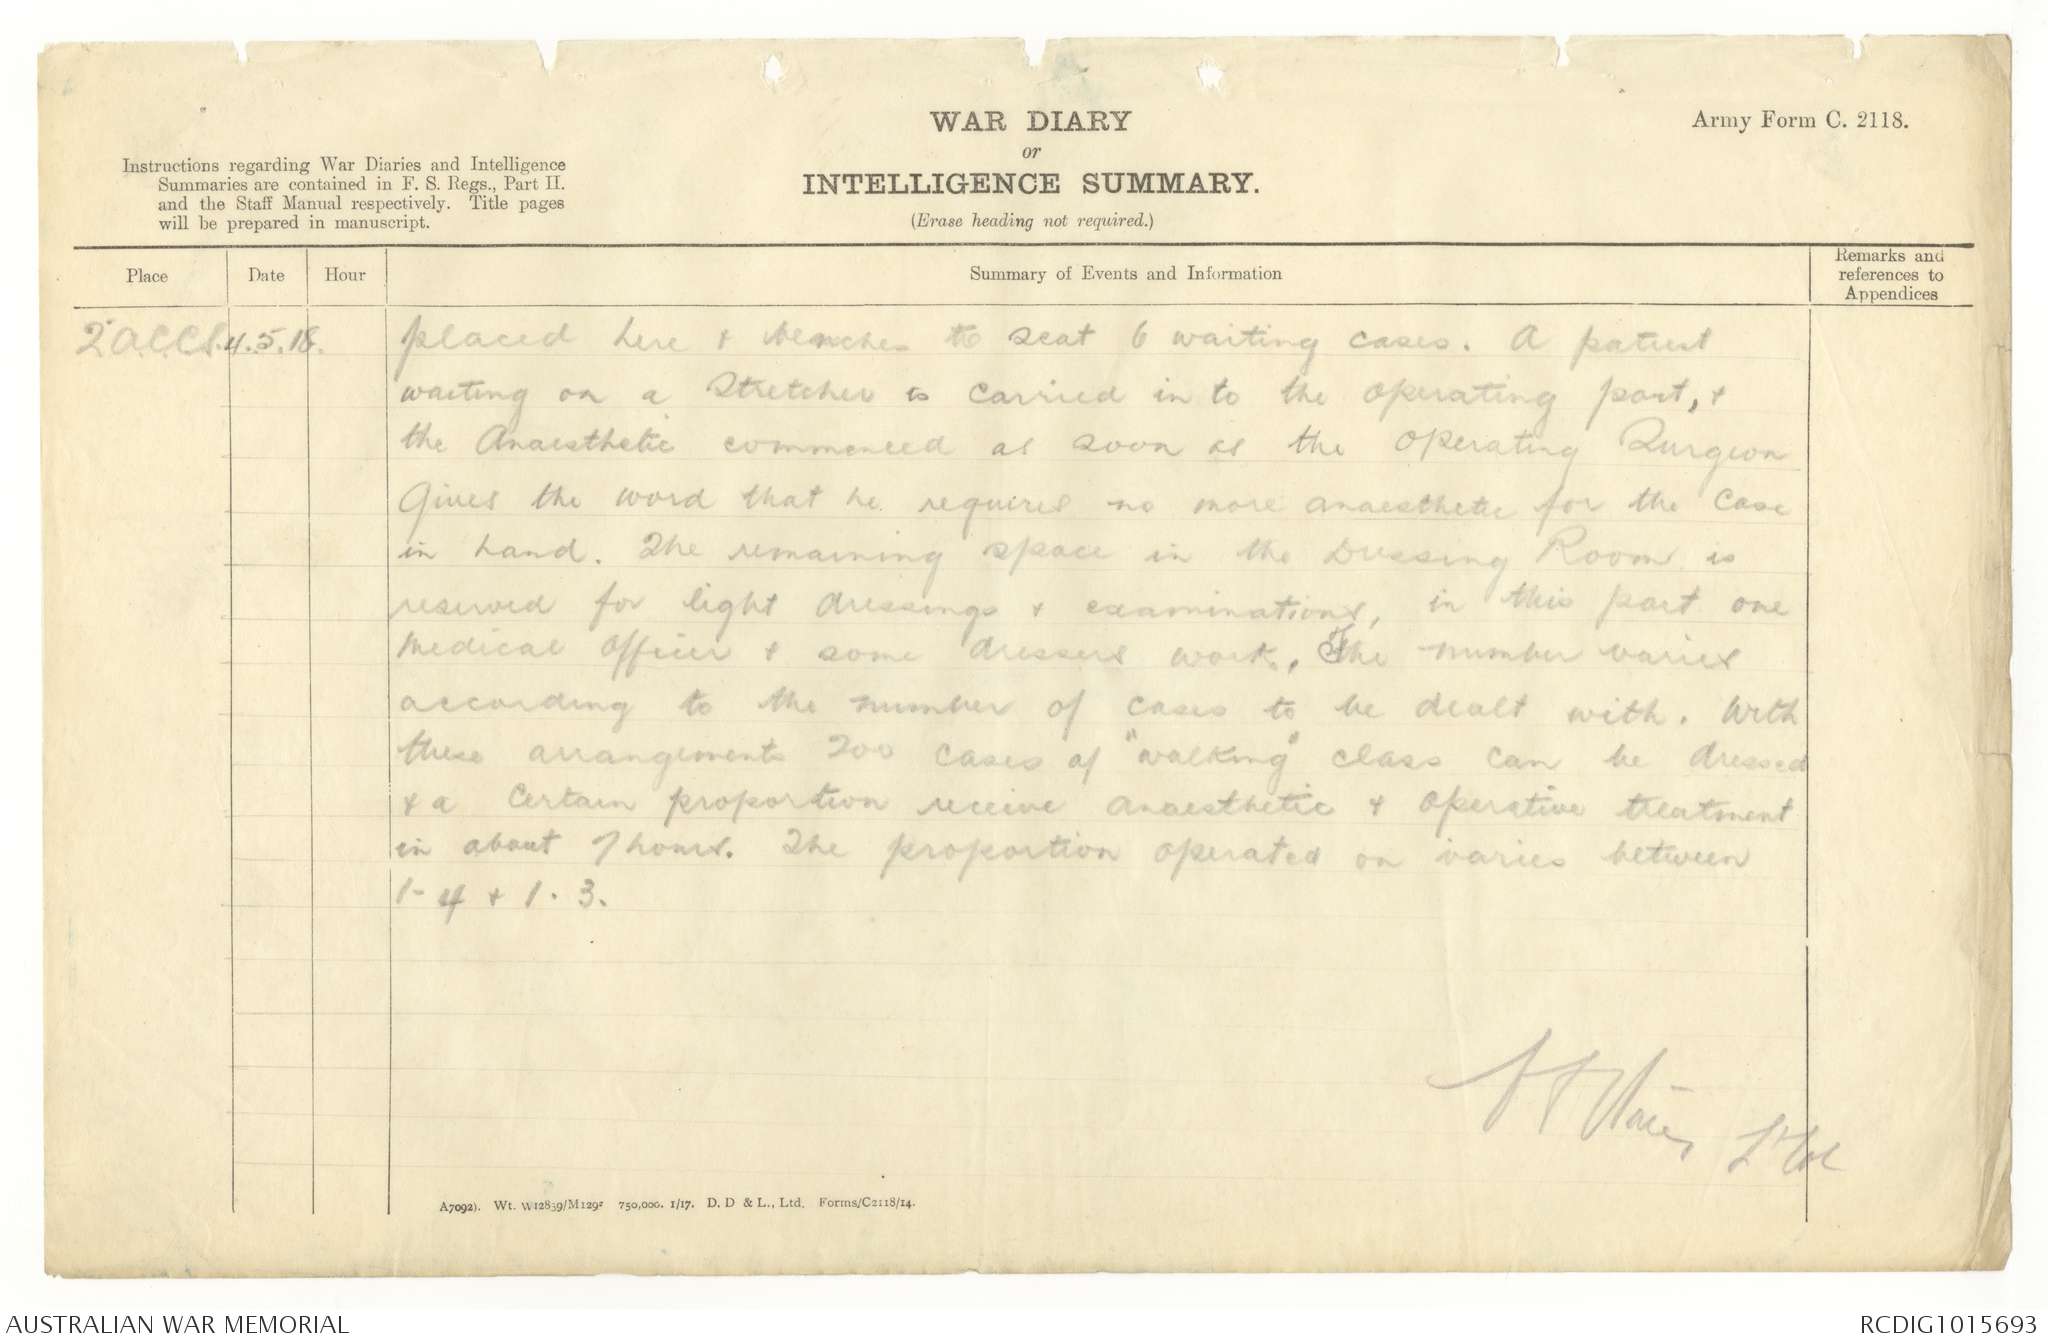 WAR DIARY
or
INTELLIGENCE SUMMARY.
(Erase heading not required.)
Army Form C. 2118.
Instructions regarding War Diaries and Intelligence
Summaries are contained in F. S. Regs., Part II.
and the Staff Manual respectively. Title pages
will be prepared in manuscript.
Place
Date
Hour
Summary of Events and Information
Remarks and
references to
Appendices
2 A.C.C.S. 4.5.18. placed here & benches to seat 6 waiting cases. A patient
waiting on a Stretcher is carried in to the operating part, &
the Anaesthetic commenced as soon as the operating Surgeon
Gives the word that he requires no more anaesthetic for the case
in hand. The remaining space in the Dressing Room is
reserved for light dressings & examinations, in this part one
Medical Officer & some dressers work. The number varies
according to the number of cases to be dealt with. With
these arrangements 200 cases of "walking" class can be dressed
& a certain proportion receive anaesthetic & operative treatment
in about 7 hours. The proportion operated on varies between
1-4 & 1.3.
Lt Col
A7092). Wt. W12839/M1293 750,000. 1/17. D. D & L., Ltd. Forms/C2118/14.
AUSTRALIAN WAR MEMORIAL
RCDIG1015693